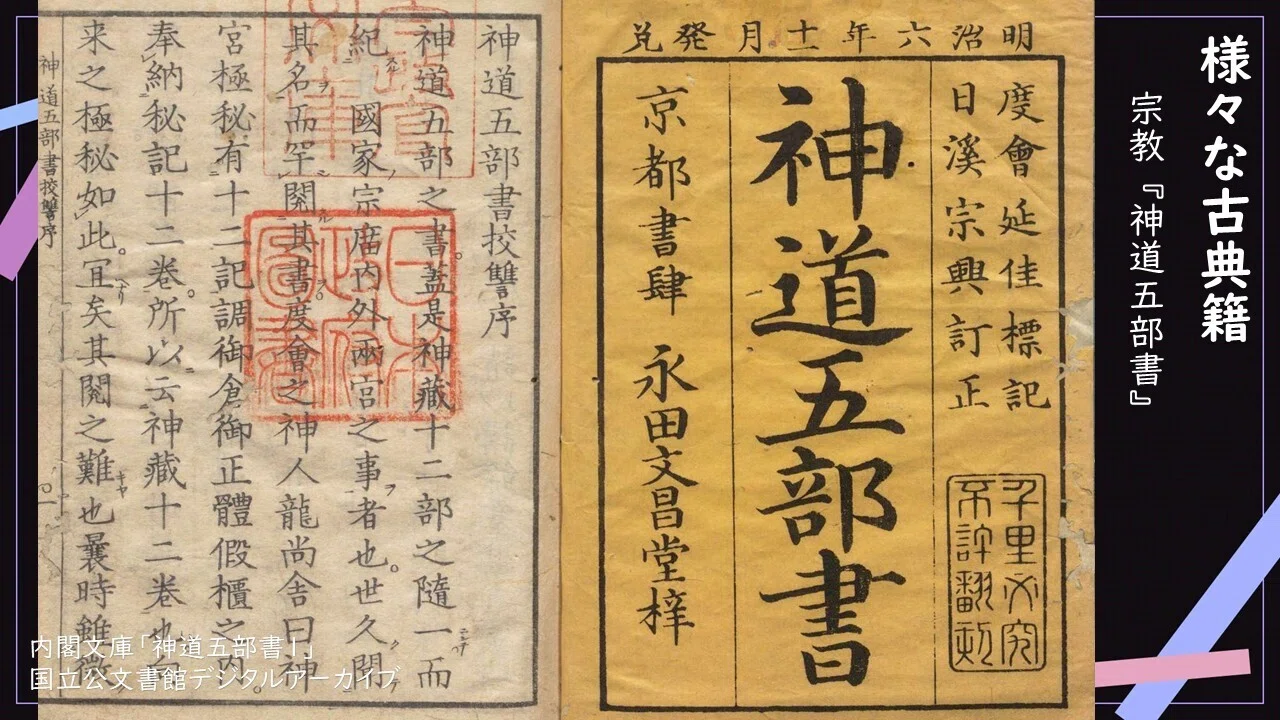 様々な古典籍
宗教『神道五部書』
明治六年十一月發兌
度會延佳標記
日溪宗興訂正
千里必究
不許翻刻
神道五部書
京都書肆 永田文昌堂梓
神道五部書校讐序
神道五部之書。蓋是神藏十二部之隨一而
紀 國家宗廟内外兩宮之事者也。世久聞
其名而罕閲其書度會之神人龍尚舍曰神
宮極秘有十二記調御倉御正體假櫃之内。
奉納秘記十二卷。所以云神藏十二卷也
来之極秘如此。宜矣其閲之難也曩時雖微
神道五部書校讐序
日本政府圖書
内閣文庫「神道五部書1」
国立公文書館デジタルアーカイブ